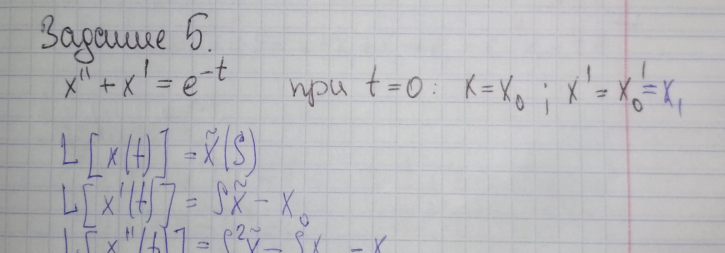 Задание 5.
x'' + x' = e^-t при t=0: x=x₀; x'=x₀'=x₁
L[x(t)] = x̃(S)
L[x'(t)] = Sx̃ - x₀
L[x''(t)] = S²x̃ - Sx - x